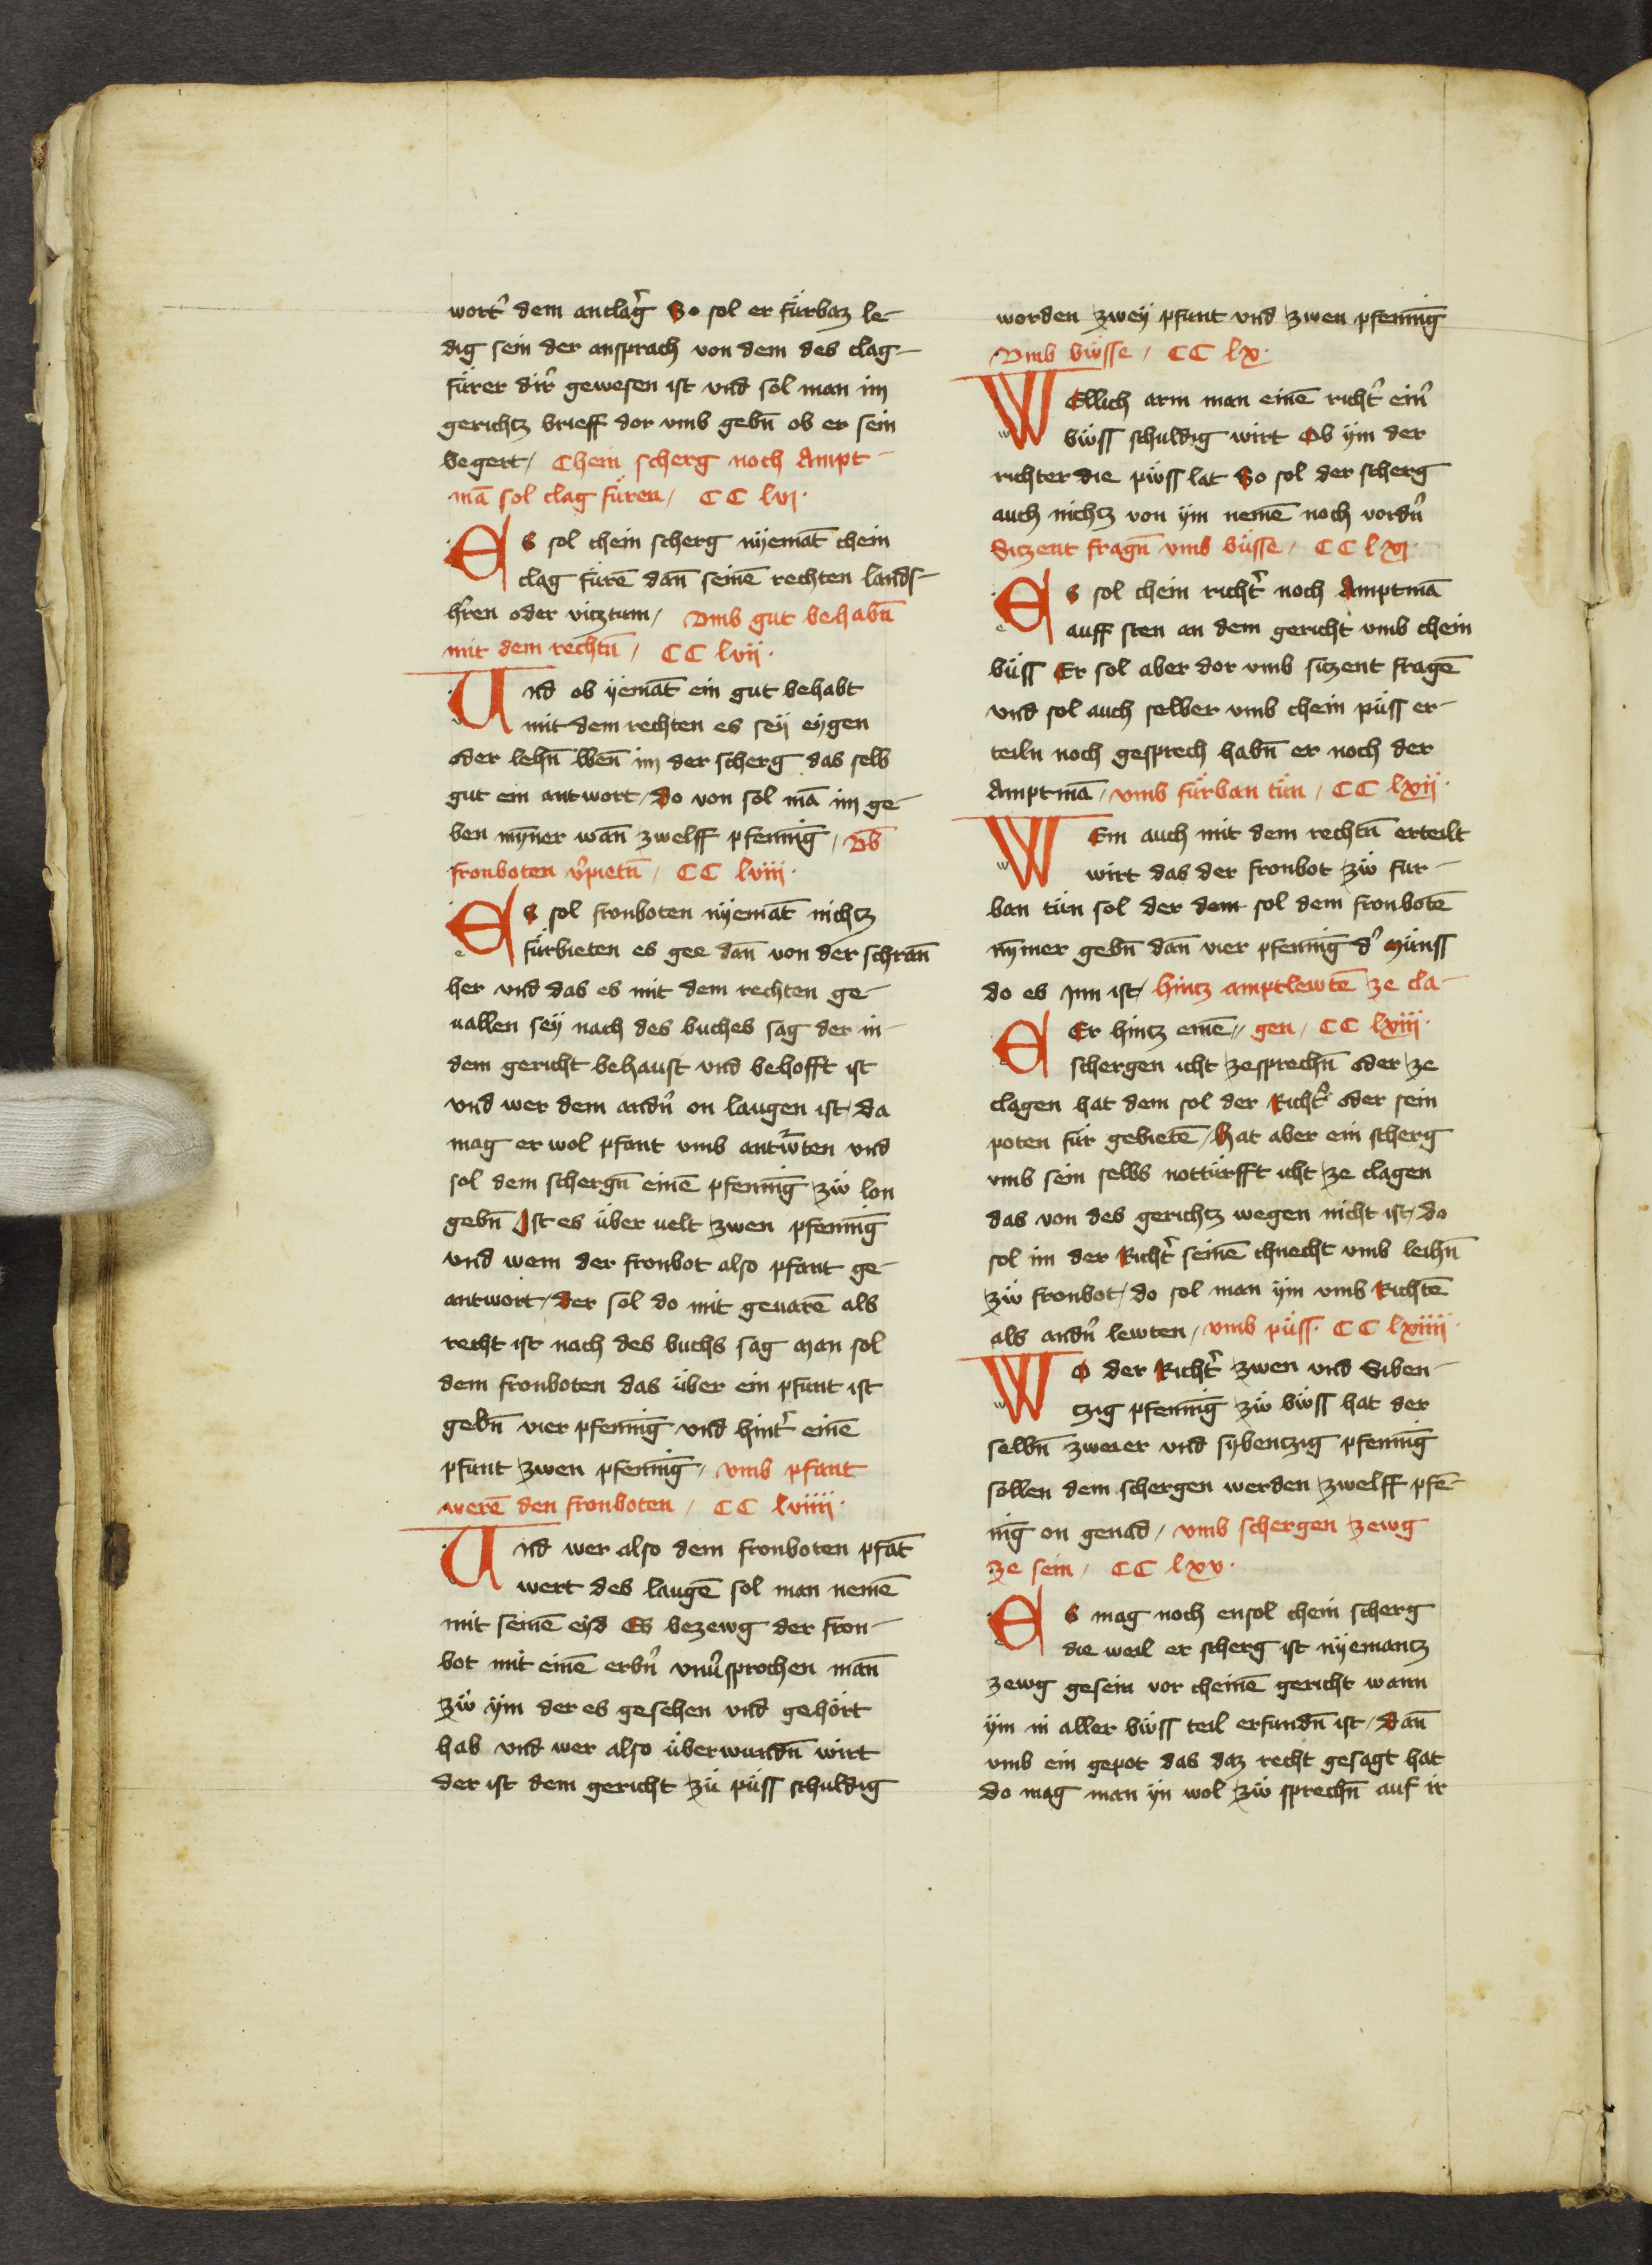 wort᷑ dem anclag᷑ So sol er fürbaz le-
dig sein der ansprach von dem des clag-
fürer dir᷑ gewesen ist vnd sol man im
gerichtz brieff dor vmb gebn̄ ob er sein
begert / Chein scherg noch Ampt-
mā sol clag füren / CC lvi·
Es sol chein scherg nÿemāt chein
clag fürē dan̄ seinē rechten lands-
hr᷑en oder vicztum / Vmb gut behabn̄
mit dem rechtn̄ / CC lvij·
Und ob ÿemāt ein gut behabt
mit dem rechten es seÿ eÿgen
oder lehn̄ wen̄ im der scherg das selb
gut ein antwort / do von sol mā im ge-
ben mȳner wan̄ zwelff pfenniḡ / Vb̄
fronboten v᷑pietn̄ / CC lviij·
Es sol fronboten nÿemāt nichtz
fürbieten es gee dan̄ von der schran̄
her vnd das es mit dem rechten ge-
uallen seÿ nach des buches sag der in-
dem gericht behaust vnd behofft ist
vnd wer dem andn᷑ on laugen ist / da
mag er wol pfant vmb antw᷑ten vnd
sol dem schergn̄ einē pfenniḡ zů lon
gebn̄ Ist es über uelt zwen pfenniḡ
vnd wem der fronbot also pfant ge-
antwort / der sol do mit geuarē als
recht ist nach des buchs sag Man sol
dem fronboten das über ein pfunt ist
gebn̄ vier pfenniḡ vnd hint᷑ einē
pfunt zwen pfenniḡ / vmb pfant
werē den fronboten / CC lviiij·
Und wer also dem fronboten pfāt
wert des laugē sol man nemē
mit seinē eÿd Es bezewg der fron-
bot mit einē erbn᷑ vnu᷑sprochen man̄
zů ÿm der es gesehen vnd gehört
hab vnd wer also überwundn̄ wirt
der ist dem gericht zü püss schuldig
worden zweÿ pfunt vnd zwen pfenniḡ
Vmb büsse / CC lx·
WEllich arm man einē richt᷑ ein᷑
büss schuldig wirt Ob ÿm der
richter die püss lat So sol der scherg
auch nichtz von ÿm nemē noch vordn᷑
Sitzent fragn̄ vmb büsse / CC lxi·
Es sol chein richt᷑ noch Amptmā
auff sten an dem gericht vmb chein
büss Er sol aber dor vmb sitzent fragē
vnd sol auch selber vmb chein püss er-
teiln noch gesprech habn̄ er noch der
Amptmā / vmb fürban tün / CC lxij·
WEm auch mit dem rechtn̄ erteilt
wirt das der fronbot zü fur-
ban tün sol der dem sol dem fronbotē
nȳmer gebn̄ dan̄ vier pfenniḡ d᷑ Münss
do es Inn ist / hintz amptlewtē ze cla-
Er hintz einē // gen / CC lxiij·
schergen icht zesprechn̄ oder ze
clagen hat dem sol der Richt᷑ oder sein
poten für gebietē / Hat aber ein scherg
vmb sein selbs nottürfft icht ze clagen
das von des gerichtz wegen nicht ist / do
sol im der Richt᷑ seinē chnecht vmb leihn̄
zü fronbot / do sol man ÿm vmb Richtē
als andn᷑ lewten / vmb püss· CC lxiiij·
WO der Richt᷑ zwen vnd Siben-
tzig pfenniḡ zü büss hat der
selbn̄ zweier vnd sybentzig pfenniḡ
söllen dem schergen werden zwelff pfē-
niḡ on genad / vmb schergen zewg
ze sein / CC lxv·
Es mag noch ensol chein scherg
die weil er scherg ist nÿemantz
zewg gesein vor cheinē gericht wann
ÿm in aller büss teil erfundn̄ ist / dan̄
vmb ein gepot das daz recht gesagt hat
do mag man ÿn wol zü sprechn̄ auf ir